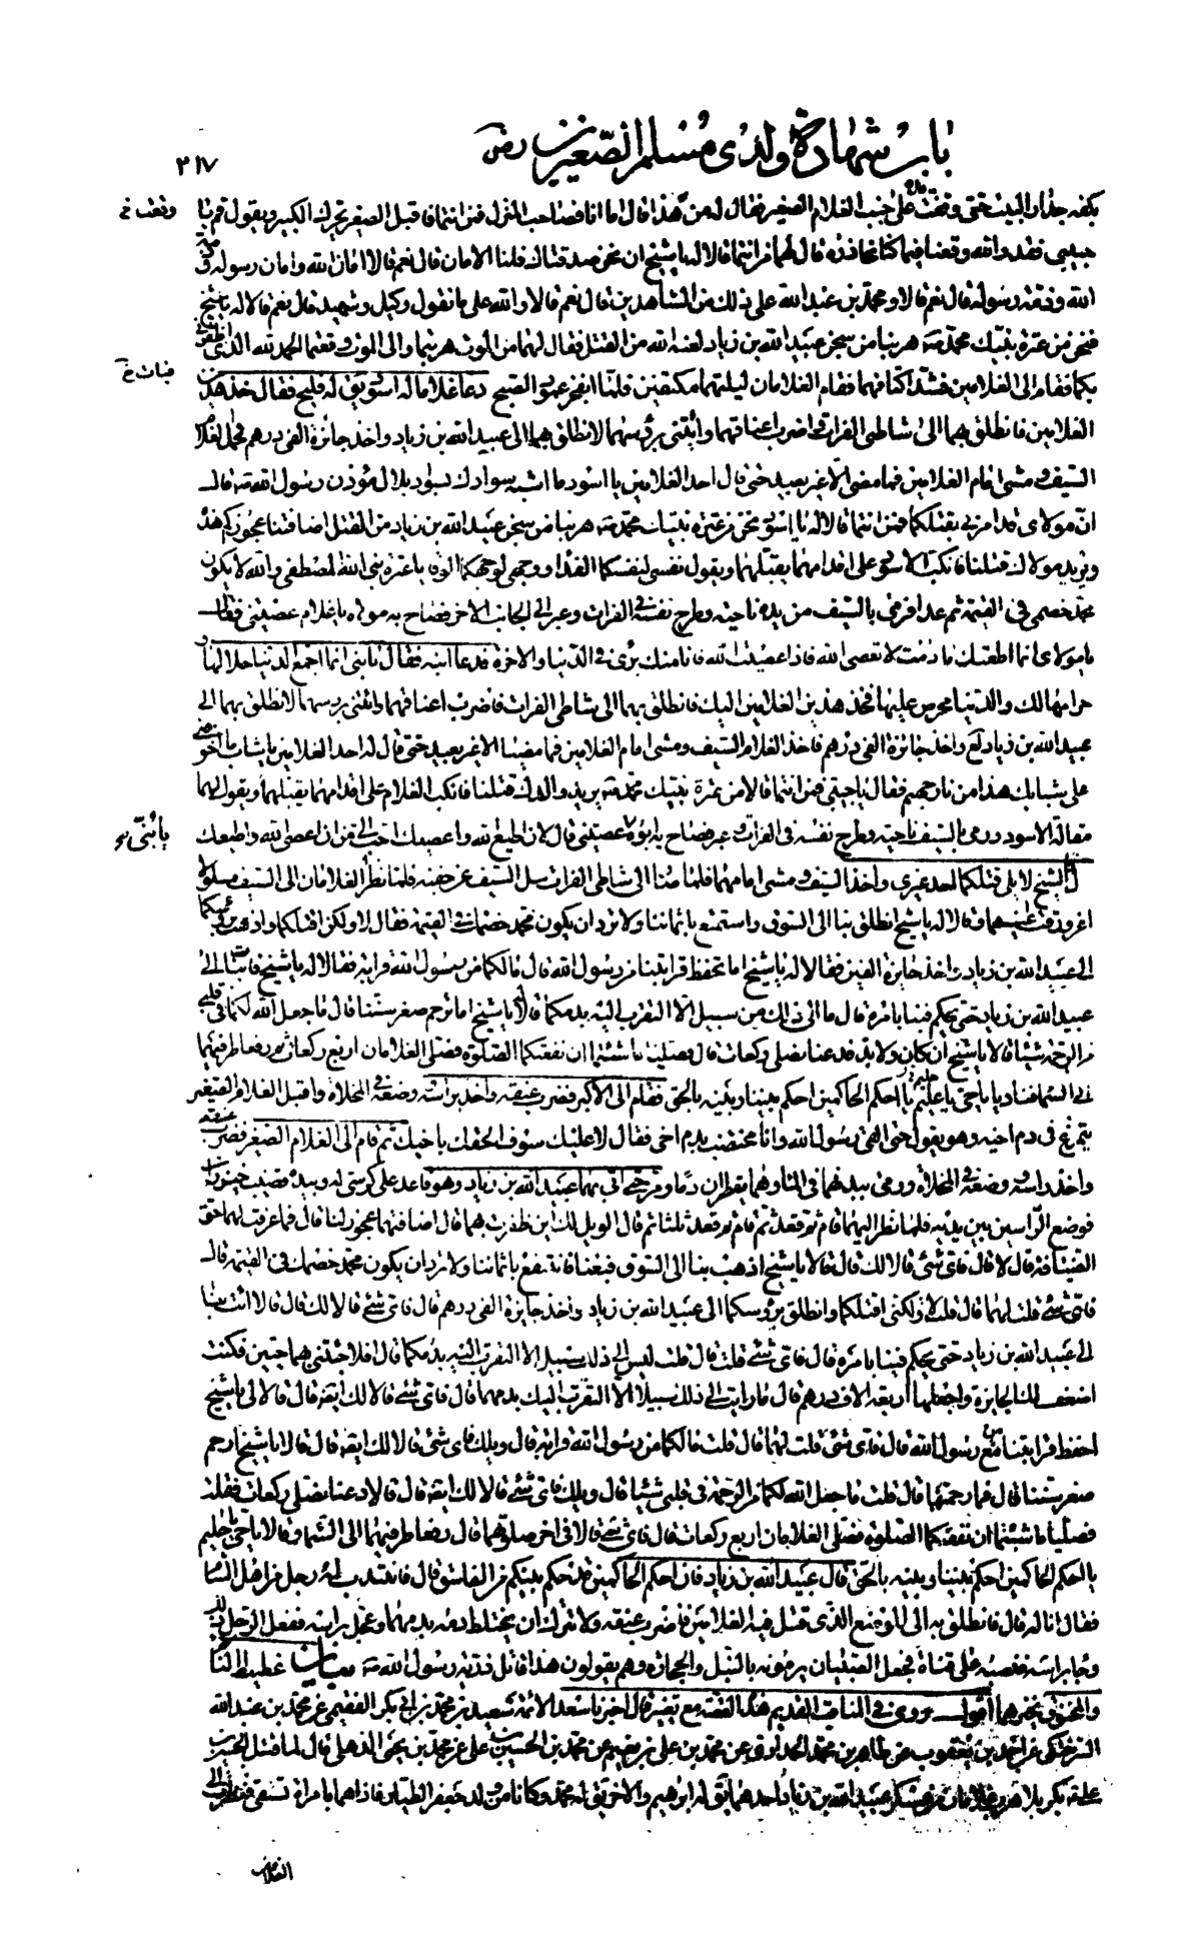 باب شهادة ولدى مسلم الصغيرين رض
٣١٧
بكفه جدار البيت حتى وقعت على جنب الغلام الصغير فقال له من هذا قال اما انا فصاحب المنزل فمن انتما فاقبل الصغير يحرك الكبير ويقول قم يا
وقعت خ
حبيبى فقد والله وقعنا فيما كنا نحاذره قال لهما من انتما قالا له يا شيخ ان نحن صدقناك فلنا الامان قال نعم قالا امان الله وامان رسوله
الله وذمة رسوله قال نعم قالا ومحمد بن عبد الله على ذلك من الشاهدين قال نعم قالا والله على ما نقول وكيل وشهيد قال نعم قالا له يا شيخ
فنحن من عترة نبيك محمد ص هربنا من سجن عبيد الله بن زياد لعنه الله من القتل فقال لهما من الموت هربتما والى الموت وقعتما الحمد لله الذى
بكما فقام الى الغلامين فشد اكتافهما فقام الغلامان ليلتهما مكتفين فلما انفجر عمود الصبح دعا غلاما له اسود يق له فليح فقال خذ هذين
فبات خ
الغلامين فانطلق بهما الى شاطئ الفرات فاضرب اعناقهما وأتنى برؤسهما لانطلق بهما الى عبيد الله بن زياد واخذ جائزة الفى درهم فحمل الغلام
السيف ومشى امام الغلامين فما مضى الا غير بعيد حتى قال احد الغلامين يا اسود ما اشبه سوادك بسواد بلال مؤذن رسول الله ص قال
ان مولاى قد امرنى بقتلكما فمن انتما قالا له يا اسود نحن من عترة نبيك محمد ص هربنا من سجن عبيد الله بن زياد من القتل اضافتنا عجوزكم هذه
ويريد مولاك قتلنا فانكب الاسود على اقدامهما يقبلهما ويقول نفسى لنفسكما الفداء ووجهى لوجهكما الوقاء يا عترة نبى الله المصطفى والله لا يكون
محمد خصمى فى القيمة ثم عدا فرمى بالسيف من يده ناحية وطرح نفسه فى الفرات وعبر الى الجانب الاخر فصاح به مولاه يا غلام عصيتنى فقال
يا مولاى انما اطعتك ما دمت لا تعصى الله فاذا عصيت الله فانا منك برئ فى الدنيا والاخرة فدعا ابنه فقال يا بنى انما اجمع الدنيا حلالها و
حرامها لك والدنيا محرص عليها فخذ هذين الغلامين اليك فانطلق بهما الى شاطئ الفرات فاضرب اعناقهما وائتنى برؤسهما لانطلق بهما الى
عبيد الله بن زياد لع واخذ جائزة الفى درهم فاخذ الغلام السيف ومشى امام الغلامين فما مضيا الا غير بعيد حتى قال له احد الغلامين يا شاب ما اخوفنى
على شبابك هذا من نار جهنم فقال يا حبيبى فمن انتما قالا من عترة نبيك محمد ص يريد والدك قتلنا فانكب الغلام على اقدامهما يقبلهما ويقول لهما
مقالة الاسود ورمى بالسيف ناحية وطرح نفسه فى الفرات وعبر فصاح به ابوه عصيتنى قال لان اطيع الله واعصيك احب الى من ان اعصى الله واطيعك
يا بنى
قال الشيخ لا يلى قتلكما احد غيرى واخذ السيف ومشى امامهما فلما صار الى شاطئ الفرات سل السيف عن جفنه فلما نظر الغلامان الى السيف مسلولا
اغرورقت عينهما وقالا له يا شيخ انطلق بنا الى السوق واستمتع باثماننا ولا ترد ان يكون محمد خصمك فى القيمة فقال لا ولكن اقتلكما واذهب برؤسكما
الى عبيد الله بن زياد واخذ جايزة الفين فقالا له يا شيخ اما تحفظ قرابتنا من رسول الله قال ما لكما من رسول الله قرابة فقالا له يا شيخ فائت بنا الى
عبيد الله بن زياد حتى يحكم فينا بامره قال ما الى ذلك من سبيل الا التقرب اليه بدمكما قالا يا شيخ اما ترحم صغر سننا قال ما جعل الله لكما فى قلبى
من الرحمة شيئا قالا يا شيخ ان كان ولا بد فدعنا نصلى ركعات قال فصليا ما شئتما ان نفعتكما الصلوة فصلى الغلامان اربع ركعات ثم رفعا طرفيهما
الى السماء فناديا يا حى يا عليم يا احكم الحاكمين احكم بيننا وبينه بالحق فقام الى الاكبر فضرب عنقه واخذ براسه وضعه فى المخلاة واقبل الغلام الصغير
حليم خ
يتمرغ فى دم اخيه وهو يقول حتى القى رسول الله وانا مختضب بدم اخى فقال لا عليك سوف الحقك باخيك ثم قام الى الغلام الصغير فضرب عنقه
واخذ راسه ووضعه فى المخلاة ورمى ببدنهما فى الماء وهما يقطران دما ومر حتى اتى بهما عبيد الله بن زياد وهو قاعد على كرسى له وبيده قضيب خيزران
فوضع الراسين بين يديه فلما نظر اليهما قام ثم قعد ثم قام ثم قعد ثلثا ثم قال الويل لك اين ظفرت بهما قال اضافتهما عجوز لنا قال فما عرفت لهما حق
الضيافة قال لا قال فاى شئ قالا لك قال قالا يا شيخ اذهب بنا الى السوق فبعنا فانتفع باثماننا ولا ترد ان يكون محمد خصمك فى القيمة قال
فاى شئ قلت لهما قال قلت لا ولكنى اقتلكما وانطلق برؤسكما الى عبيد الله بن زياد واخذ جايزة الفى درهم قال فاى شئ قالا لك قال قالا ائت بنا
الى عبيد الله بن زياد حتى يحكم فينا بامره قال فاى شئ قلت قال قلت ليس الى ذلك سبيل الا التقرب اليه بدمكما قال افلا جئتنى بهما حيين فكنت
اضعف لك الجايزة واجعلها اربعة الاف درهم قال ما رايت الى ذلك سبيلا الا التقرب اليك بدمهما قال فاى شئ قالا لك ايضا قال قالا لى يا شيخ
احفظ قرابتنا من رسول الله قال فاى شئ قلت لهما قال قلت ما لكما من رسول الله قرابة قال ويلك فاى شئ قالا لك ايضا قال قالا يا شيخ ارحم
صغر سننا قال فما رحمتهما قال قلت ما جعل الله لكما من الرحمة فى قلبى شيئا قال ويلك فاى شئ قالا لك ايضا قال قالا دعنا نصلى ركعات فقلت
فصليا ما شئتما ان نفعتكما الصلوة فصلى الغلامان اربع ركعات قال فاى شئ قالا فى اخر صلوتهما قال رفعا طرفيهما الى السماء وقالا يا حى يا حليم
يا احكم الحاكمين احكم بيننا وبينه بالحق قال عبيد الله بن زياد فان احكم الحاكمين قد حكم بينكم من للفاسق قال فانتدب له رجل من اهل الشام
فقال انا له قال فانطلق به الى الموضع الذى قتل فيه الغلامين فاضرب عنقه ولا تترك ان يختلط دمه بدمهما وعجل براسه ففعل الرجل ذلك
وجاء براسه فنصبه على قناة فجعل الصبيان يرمونه بالنبل والحجارة وهم يقولون هذا قاتل ذرية رسول الله ص بيان غطيط النائم
والمخنوق نخيرهما اقول روى فى المناقب القديم هذه القصة مع تغيير قال اخبرنا سعد الائمة سعيد بن محمد بن ابى بكر الفقيمى عن محمد بن عبد الله
السرختكى عن احمد بن يعقوب عن طاهر بن محمد الحدادى عن محمد بن على بن نعيم عن محمد بن الحسين بن على عن محمد بن يحيى الذهلى قال لما قتل الحسين
عليه بكربلا هرب غلامان من عسكر عبيد الله بن زياد احدهما يق له ابراهيم والاخر يق له محمد وكانا من ولد جعفر الطيار فاذا هما بامراة تستقى فنظرت الى
الغلامين